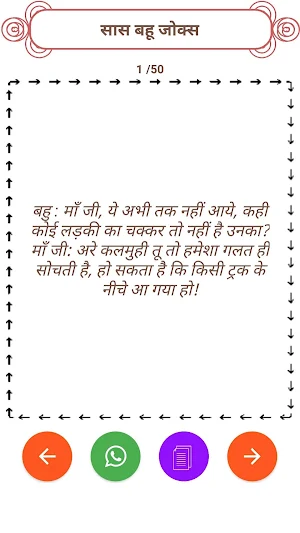 सास बहू जोक्स
1 /50
बहु : माँ जी, ये अभी तक नहीं आये, कही
कोई लड़की का चक्कर तो नहीं है उनका?
माँ जी: अरे कलमुही तू तो हमेशा गलत ही
सोचती है, हो सकता है कि किसी ट्रक के
नीचे आ गया हो!